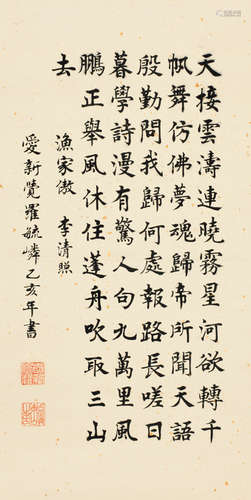 天接雲濤連曉霧星河欲轉千
帆舞仿佛夢魂歸帝所聞天語
殷勤問我歸何處報路長嗟日
暮學詩漫有驚人句九萬里風
鵬正舉風休住蓬舟吹取三山
去
漁家傲 李清照
愛新覺羅毓嶙乙亥年書